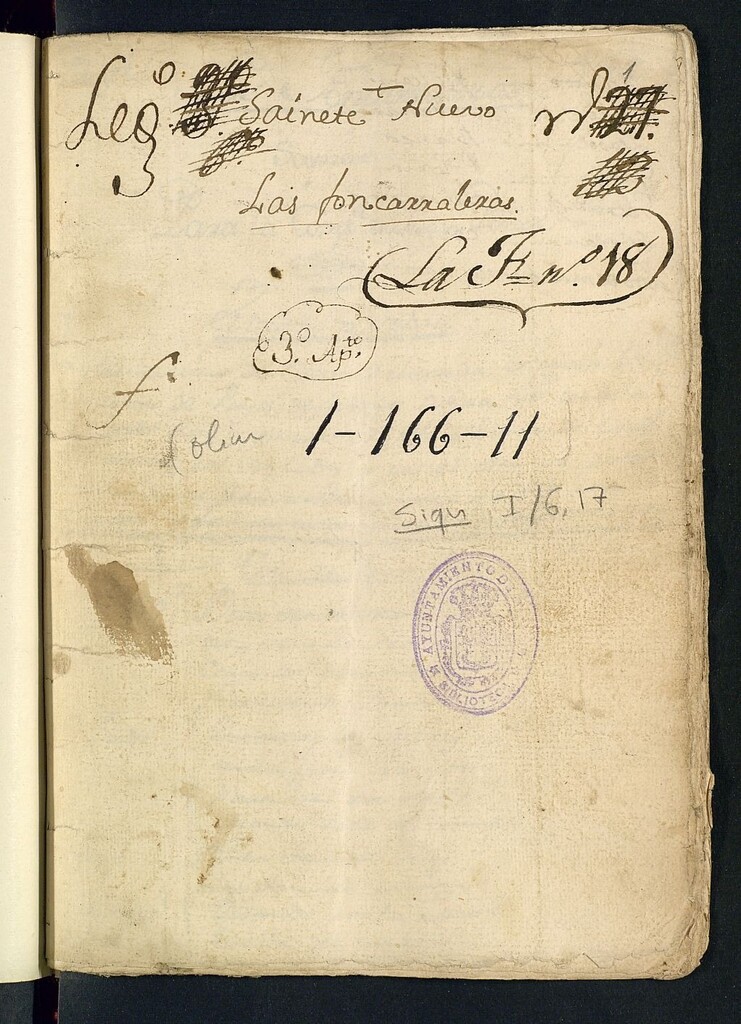 Leg.º Sainete Nuevo nº 1
Las foncarraleras
La F= nº. 18
3º. Apto.
f.
(olim 1-166-11)
Sign I/6, 17
AYUNTAMIENTO DE
BIBLIOTECA